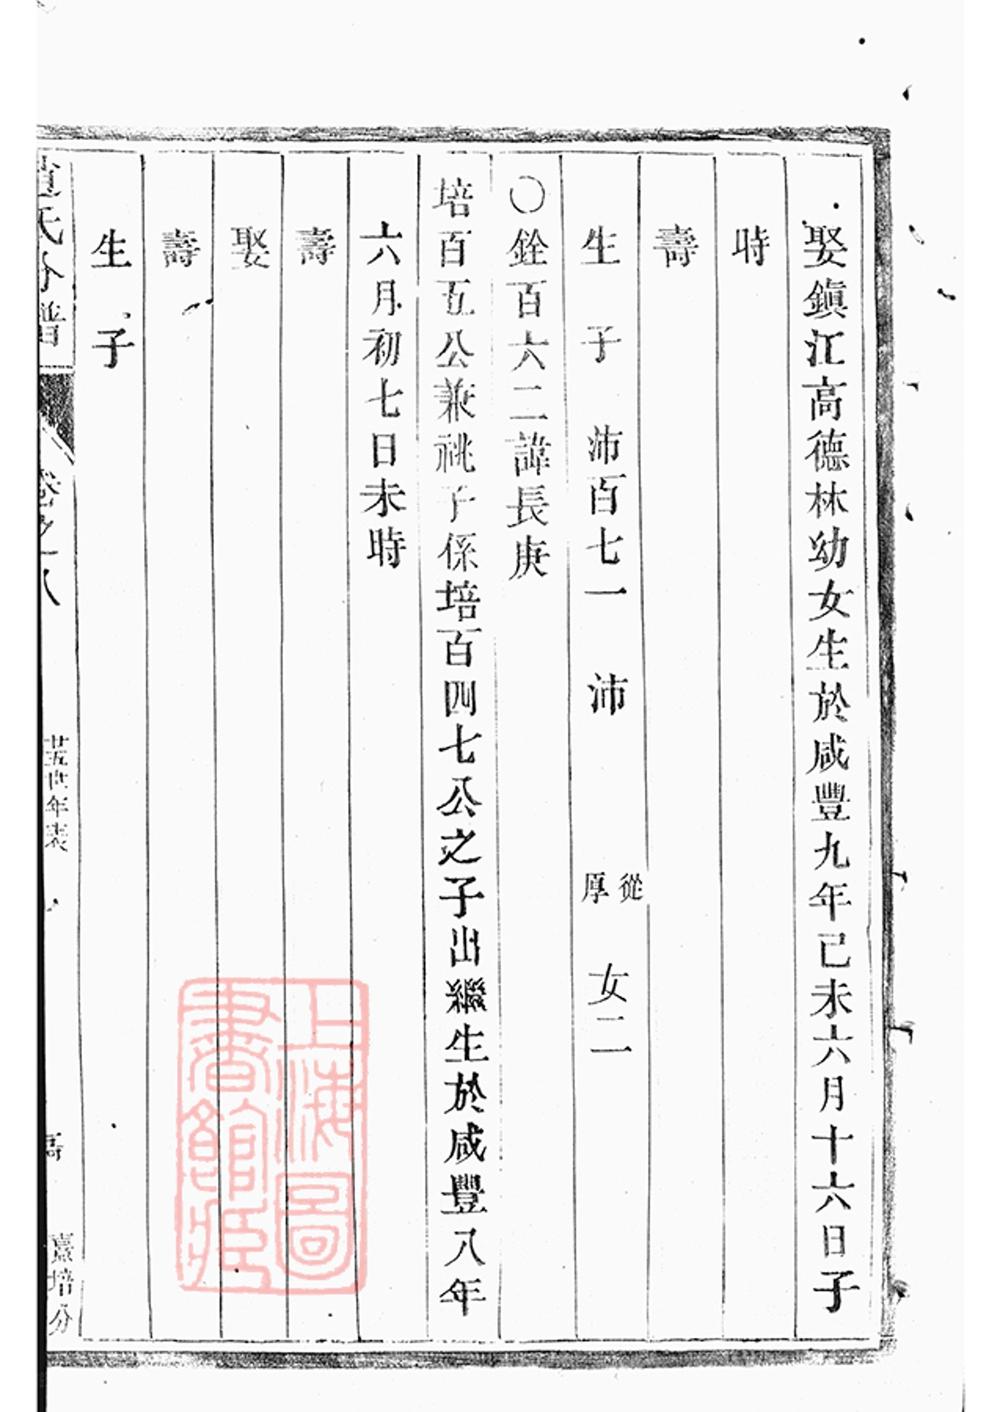 娶鎭江高德林幼女生於咸豐九年己未六月十六日子
時
壽
生 子 沛百七一 沛 從厚 女二
〇銓百六二諱長庚
培百五公兼祧子係培百四七公之子出繼生於咸豐八年
六月初七日未時
壽
娶
壽
生 子
趙氏分譜
卷之十八
廿五世年表
熹培分
上海圖
書館藏